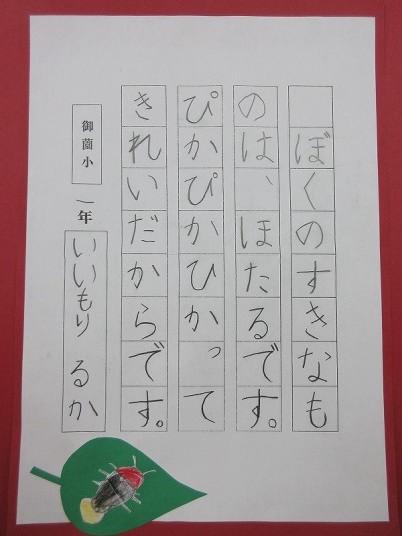 ぼくのすきなも
のは、ほたるです。
ぴかぴかひかって
きれいだからです。
御薗小
一年
いいもり るか